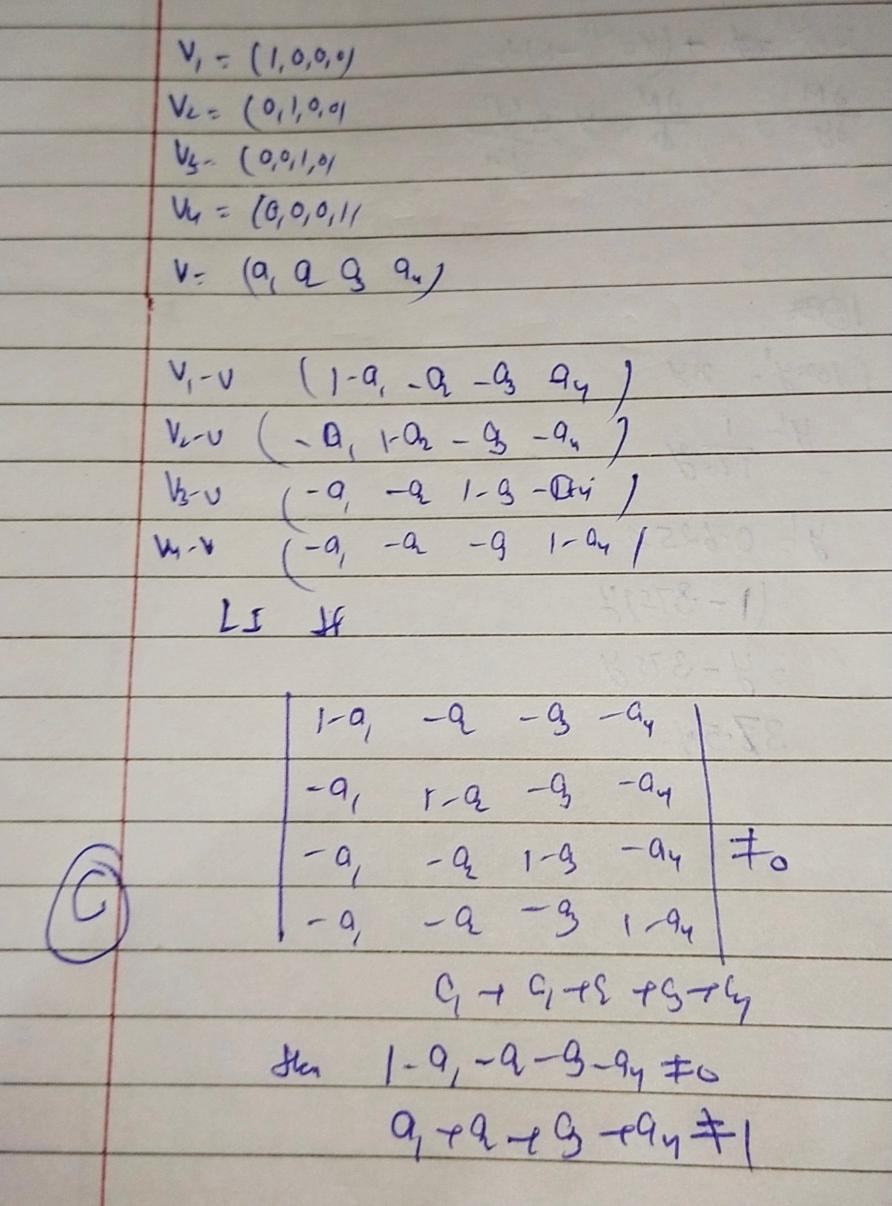 V₁ = (1,0,0,0)
V₂ = (0,1,0,0)
V₃ = (0,0,1,0)
V₄ = (0,0,0,1)
V = (a₁ a₂ a₃ a₄)
V₁-V (1-a₁ -a₂ -a₃ a₄)
V₂-V (-a₁ 1-a₂ -a₃ -a₄)
V₃-V (-a₁ -a₂ 1-a₃ -a₄)
V₄-V (-a₁ -a₂ -a₃ 1-a₄)
LI If
| 1-a₁ -a₂ -a₃ -a₄ |
| -a₁ 1-a₂ -a₃ -a₄ |
| -a₁ -a₂ 1-a₃ -a₄ | ≠0
C
| -a₁ -a₂ -a₃ 1-a₄ |
C₁ → C₁+C₂+C₃+C₄
then 1-a₁-a₂-a₃-a₄ ≠0
a₁+a₂+a₃+a₄ ≠1